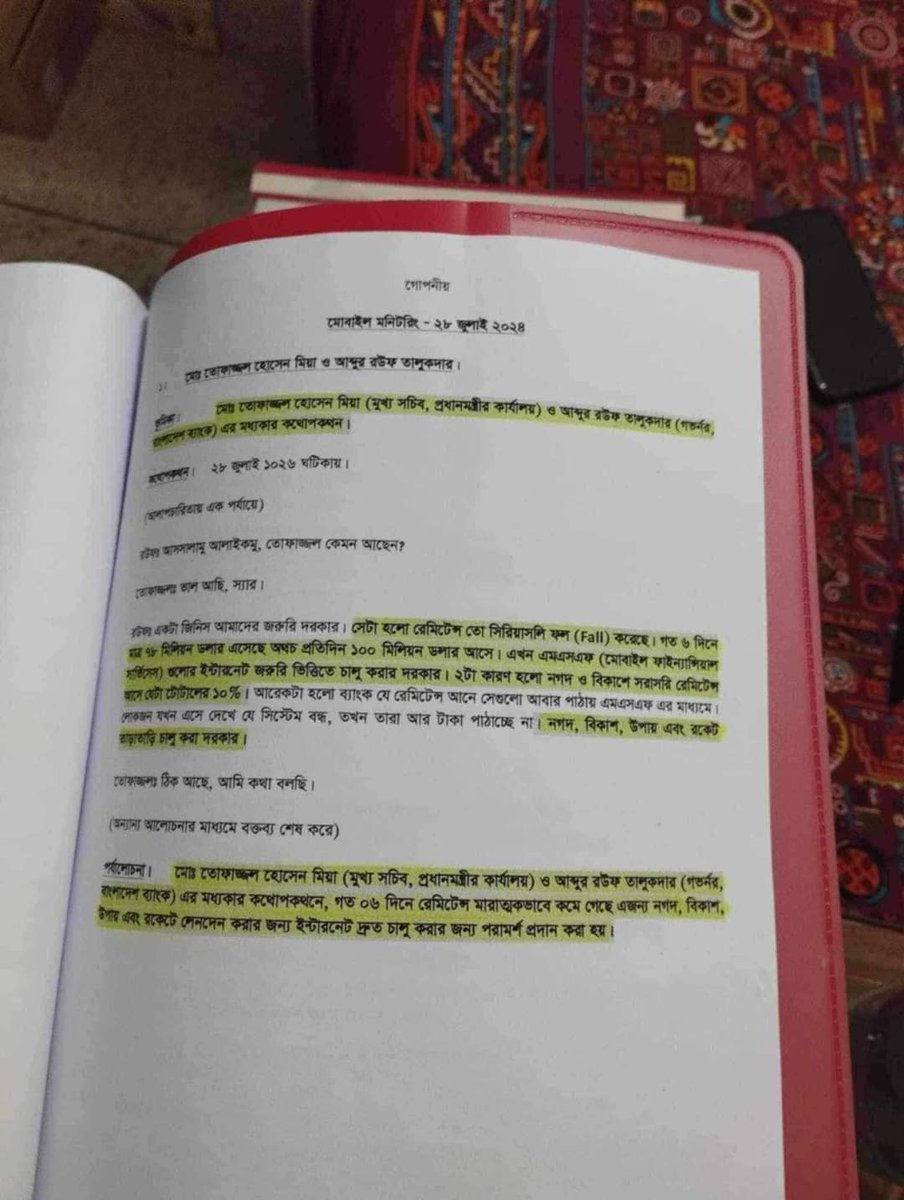 গোপনীয়
মোবাইল মনিটরিং - ২৮ জুলাই ২০২৪
১। মোঃ তোফাজ্জল হোসেন মিয়া ও আব্দুর রউফ তালুকদার।
ভূমিকা। মোঃ তোফাজ্জল হোসেন মিয়া (মুখ্য সচিব, প্রধানমন্ত্রীর কার্যালয়) ও আব্দুর রউফ তালুকদার (গভর্নর,
বাংলাদেশ ব্যাংক) এর মধ্যকার কথোপকথন।
কথোপকথন। ২৮ জুলাই ১০২৬ ঘটিকায়।
(আলাপচারিতায় এক পর্যায়ে)
রউফঃ আসসালামু আলাইকমু, তোফাজ্জল কেমন আছেন?
তোফাজ্জলঃ ভাল আছি, স্যার।
রউফঃ একটা জিনিস আমাদের জরুরি দরকার। সেটা হলো রেমিটেন্স তো সিরিয়াসলি ফল (Fall) করেছে। গত ৬ দিনে
মাত্র ৭৮ মিলিয়ন ডলার এসেছে অথচ প্রতিদিন ১০০ মিলিয়ন ডলার আসে। এখন এমএসএফ (মোবাইল ফাইন্যান্সিয়াল
সার্ভিসেস) গুলোর ইন্টারনেট জরুরি ভিত্তিতে চালু করার দরকার। ২টা কারণ হলো নগদ ও বিকাশে সরাসরি রেমিটেন্স
আসে যেটা টোটালের ১০%। আরেকটা হলো ব্যাংক যে রেমিটেন্স আনে সেগুলো আবার পাঠায় এমএসএফ এর মাধ্যমে।
লোকজন যখন এসে দেখে যে সিস্টেম বন্ধ, তখন তারা আর টাকা পাঠাচ্ছে না। নগদ, বিকাশ, উপায় এবং রকেট
তাড়াতাড়ি চালু করা দরকার।
তোফাজ্জলঃ ঠিক আছে, আমি কথা বলছি।
(অন্যান্য আলোচনার মাধ্যমে বক্তব্য শেষ করে)
পর্যালোচনা। মোঃ তোফাজ্জল হোসেন মিয়া (মুখ্য সচিব, প্রধানমন্ত্রীর কার্যালয়) ও আব্দুর রউফ তালুকদার (গভর্নর,
বাংলাদেশ ব্যাংক) এর মধ্যকার কথোপকথনে, গত ০৬ দিনে রেমিটেন্স মারাত্মকভাবে কমে গেছে এজন্য নগদ, বিকাশ,
উপায় এবং রকেটে লেনদেন করার জন্য ইন্টারনেট দ্রুত চালু করার জন্য পরামর্শ প্রদান করা হয়।